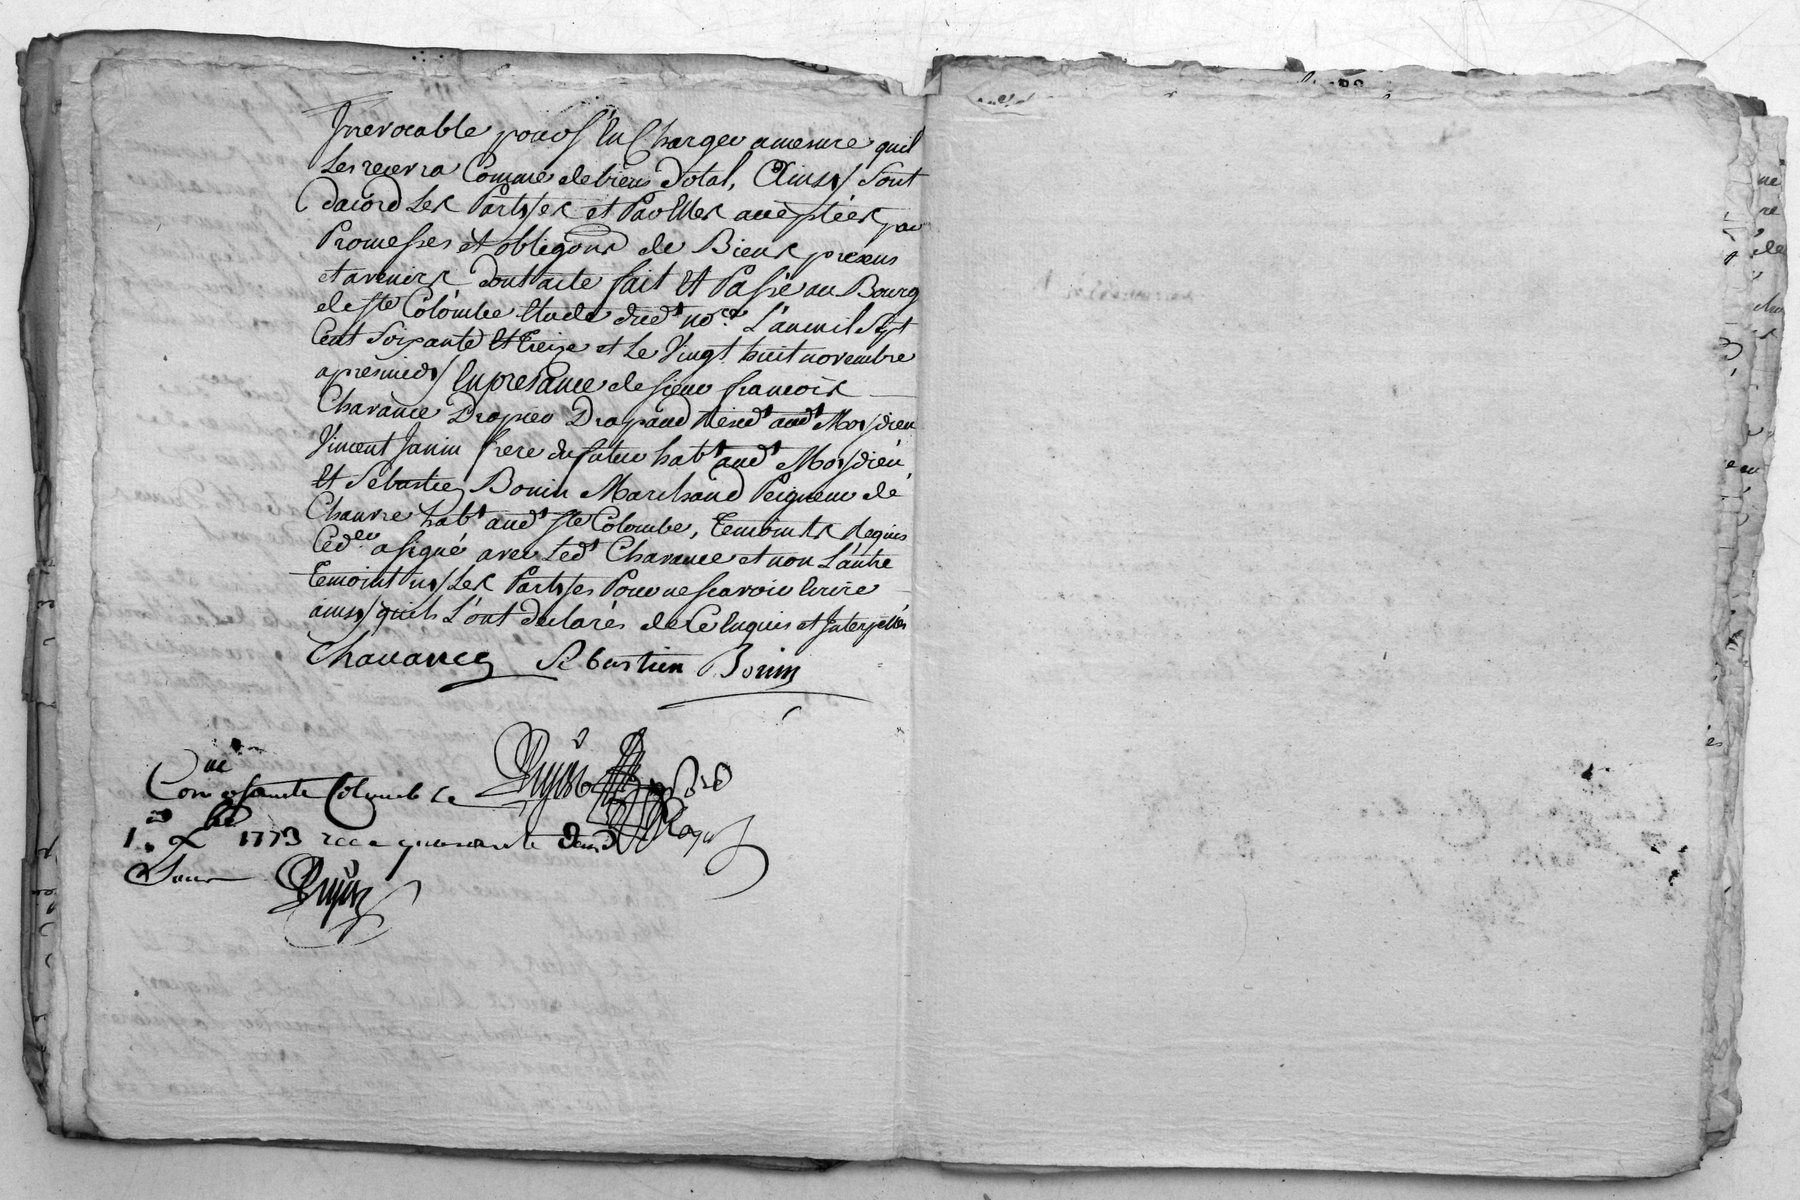 Irrevocable pour s'en Charger amesure quil
Les recevra Comme de biens Dotal, Ainsy Sont
dacord Les Partyes et Par Elles acceptées par
Promesses et obligons de Biens presens
et avenirs dont acte fait Et Passé au Bourg
de Ste Colombe Etude dud.t no.re L'an mil Sept
Cent Soixante Et Treize et Le Vingt huit novembre
apresmidy En presance de sieur francois
Chavance Drapier Drapand Resid.t aud.t Moydieu
Vincent Janin frere du futur hab.t aud.t Moydieu,
Et Sebastien Bonin Marchand Peigneur de
Chanvre hab.t aud.t Ste Colombe, Temoints Requis
Ced.er a signé avec Led.t Chavance et non L'autre
Temoint ny Les Partyes Pour ne scavoir Ecrire
ainsy quils L'ont declarés de Ce Enquis et Interpellés
Chavance Sebastien Bonin
Con.lé a Sainte Colombe Le
1er Xbre 1773 recu quarante deux
Sous